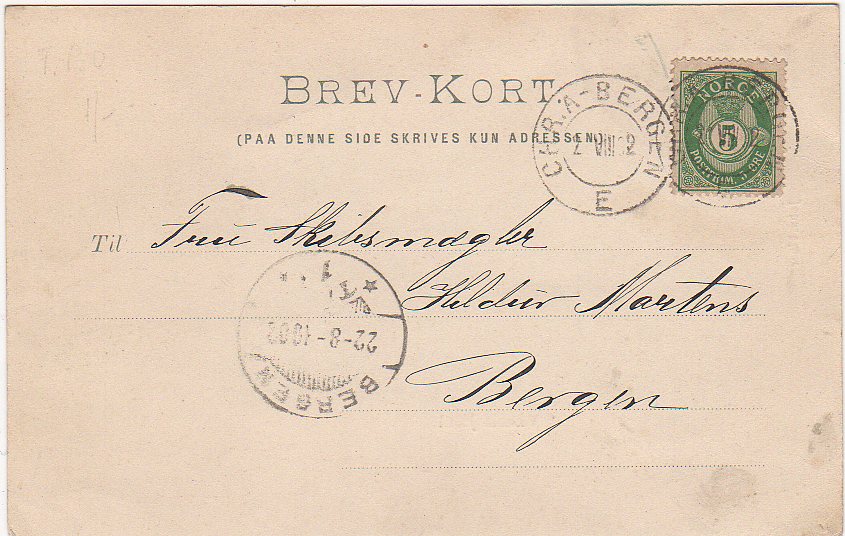 BREV-KORT
(PAA DENNE SIDE SKRIVES KUN ADRESSEN)
CHR.A-BERGEN
E
NORGE
5
POSTFRIM. 5 ØRE
Til Frue Skibsmægler
Martens
Bergen
1
22-8-1902
BERGEN